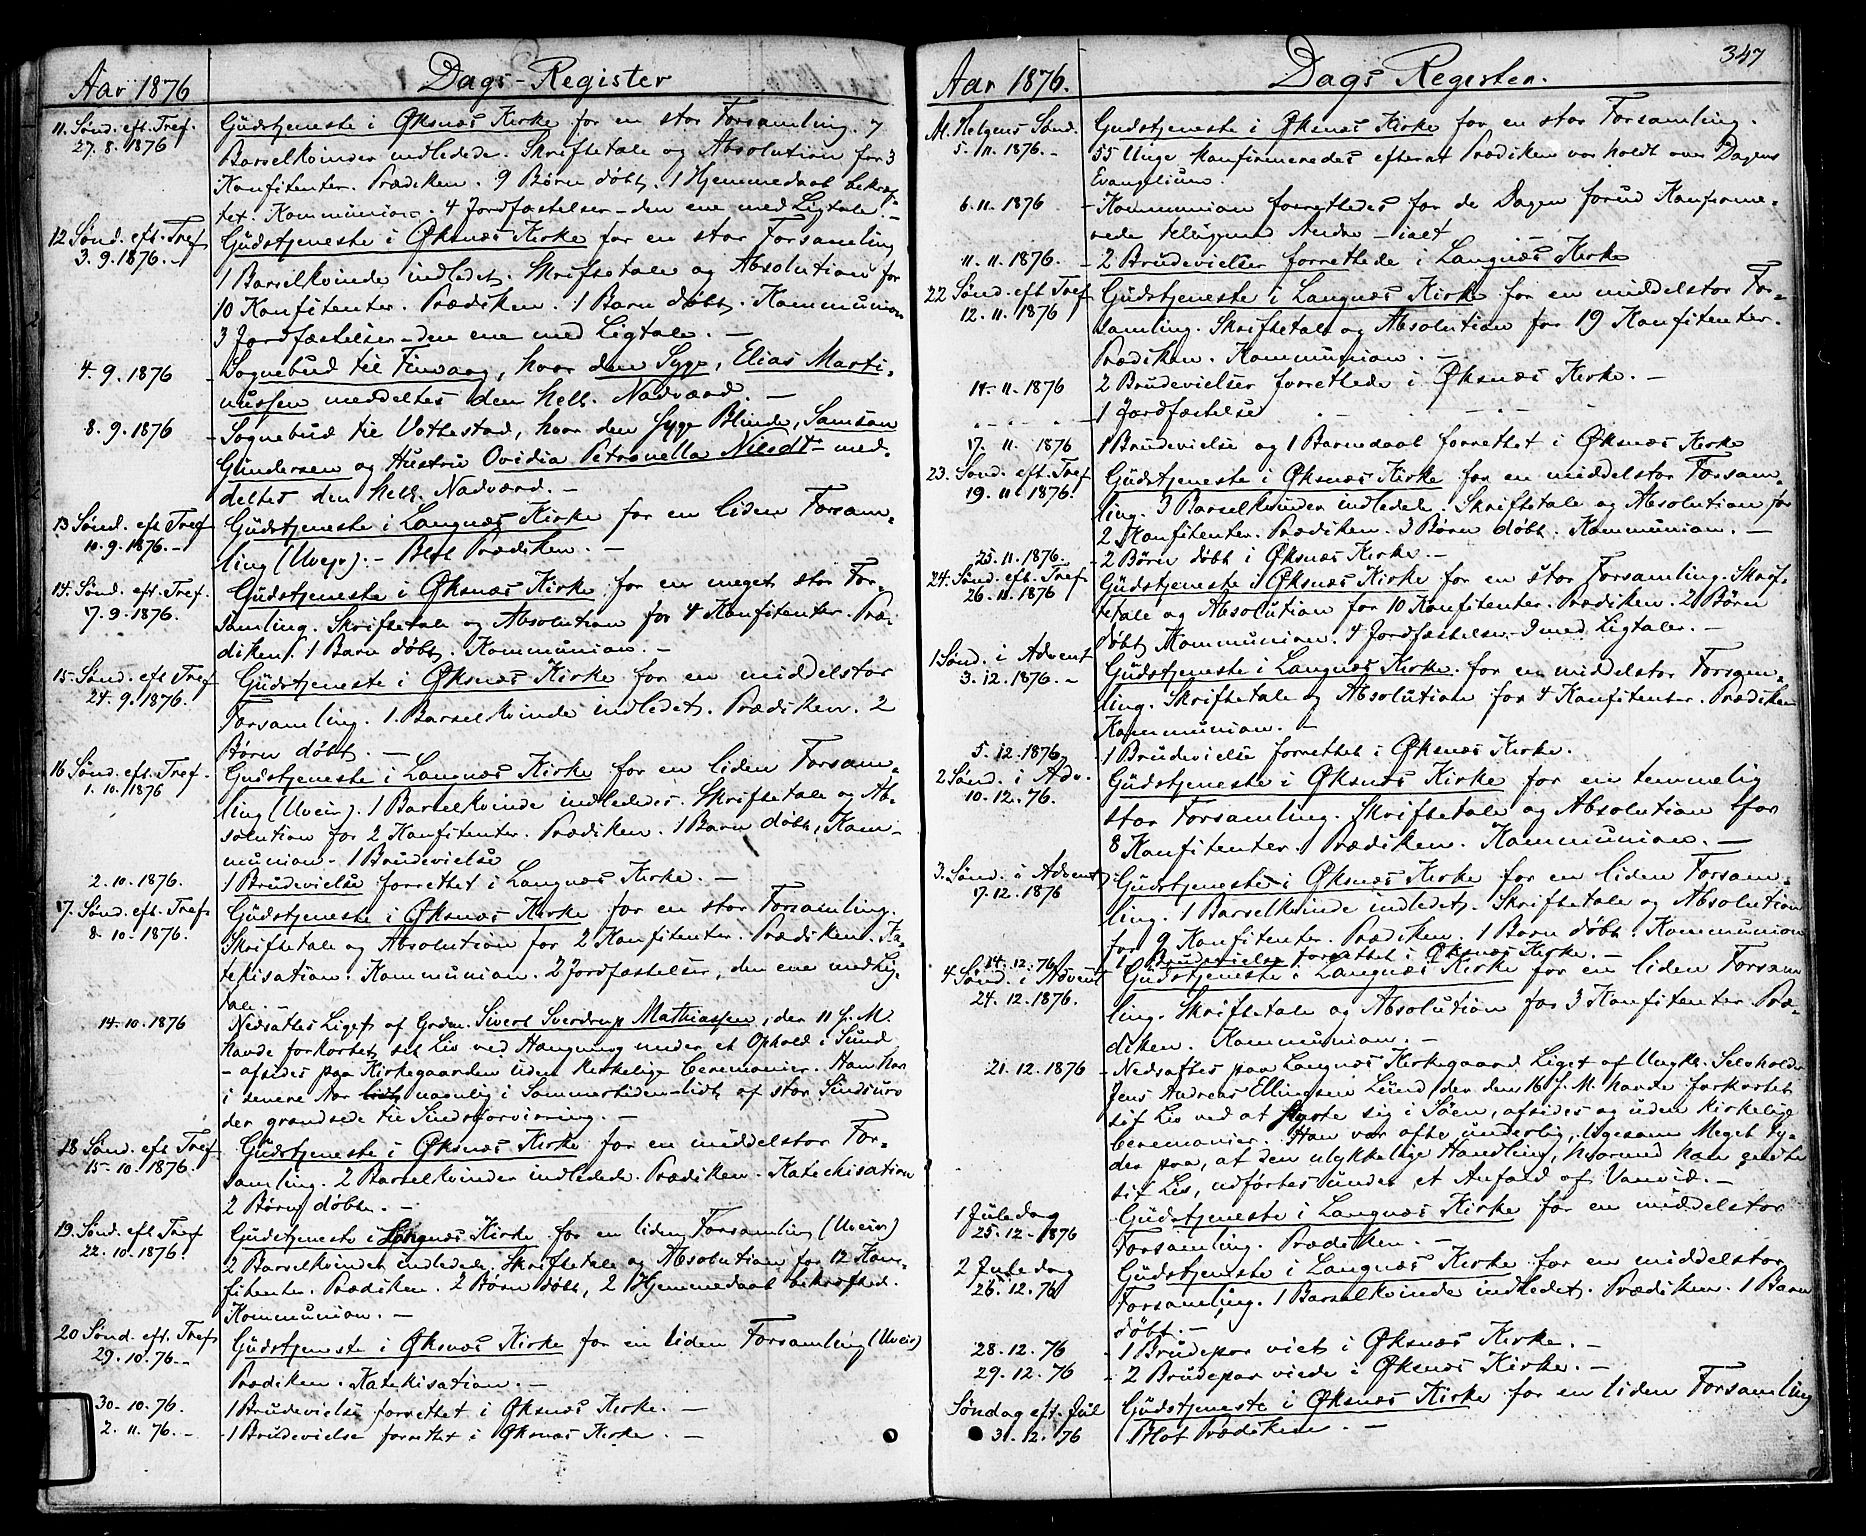 Aar 1876
Dags-Register
11. Sønd. eft. Tref. Gudstjeneste i Øksnæs Kirke for en stor Forsamling. 7
27. 8. 1876 Barselkvinder indledede. Skriftetale og Absolution for 3
Konfitenter. Prædiken. 9 Børn døbt. 1 Hjemmedaab bekræf
tet. Kommunion. 4 Jordfæstelser – den ene med Ligtale. –
12 Sønd. eft. Tref Gudstjeneste i Øksnæs Kirke for en stor Forsamling
3. 9. 1876. – 1 Barselkvinde indledet. Skriftetale og Absolution for
10 Konfitenter. Prædiken. 1 Barn døbt. Kommunion
3 Jordfæstelser – den ene med Ligtale. –
4. 9. 1876 – Sognebud til Finvaag, hvor den Syge, Elias Marti-
nussen meddeltes den hell. Nadværd. –
8. 9. 1876 – Sognebud til Vottestad, hvor den syge Blinde, Samson
Gundersen og Hustru Ovidia Petronella Nilsdtr med-
deltes den hell. Nadværd. –
13 Sønd. eft Tref Gudstjeneste i Langnæs Kirke for en liden Forsam-
10. 9. 1876. – ling (Uveir). – Blot Prædiken. –
14. Sønd. eft. Tref. Gudstjeneste i Øksnæs Kirke for en meget stor For-
17. 9. 1876. samling. Skriftetale og Absolution for 4 Konfitenter. Præ-
diken. 1 Barn døbt. Kommunion. –
15 Sønd. eft Tref Gudstjeneste i Øksnæs Kirke for en middelstor
24. 9. 1876. Forsamling. 1 Barselkvinde indledet. Prædiken. 2
Børn døbt. –
16 Sønd. eft. Tref. Gudstjeneste i Langnæs Kirke for en liden Forsam-
1. 10. 1876 ling (Uveir). 1 Barselkvinde indledes. Skriftetale og Ab-
solution for 2 Konfitenter. Prædiken. 1 Barn døbt, Kom-
munion – 1 Brudevielse
2. 10. 1876. 1 Brudevielse forrettet i Langnæs Kirke. –
17. Sønd. eft. Tref. Gudstjeneste i Øksnæs Kirke for en stor Forsamling.
8. 10. 1876. Skriftetale og Absolution for 2 Konfitenter. Prædiken. Ka-
tekisation. Kommunion. 2 Jordfæstelser, den ene med Lig-
tale. –
14. 10. 1876 Nedsattes Liget af Grdm. Sivert Sverdrup Mathiassen, der 11 f. M.
havde forkortet sit Liv ved Hængning under et Ophold i Sund
– afsides paa Kirkegaarden uden kirkelige Ceremonier. Han har
i senere Aar navnlig i Sommertiden lidt af stor Sindsuro
der grændsede til Sindsforvirring. –
18 Sønd. eft Tref. Gudstjeneste i Øksnæs Kirke for en middelstor For-
15. 10. 1876. samling. 2 Barselkvinder indledede. Prædiken. Katechisation
2 Børn døbte. –
19. Sønd. eft Tref Gudstjeneste i Langnæs Kirke for en liden Forsamling (Uveir)
22. 10. 1876. 2 Barselkvinder indledede. Skriftetale og Absolution for 12 Kon-
fitenter. Prædiken. 2 Børn døbt, 2 Hjemmedaab bekræftet.
Kommunion. –
20 Sønd. eft. Tref. Gudstjeneste i Øksnæs Kirke for en liden Forsamling (Uveir)
29. 10. 76. – Prædiken. Katekisation. –
30. 10. 76. 1 Brudevielse forrettet i Øksnæs Kirke. –
2. 11. 76. – 1 Brudevielse forrettet i Øksnæs Kirke. –
347
Aar 1876.
Dags Register.
Al. Helgens Sønd. Gudstjeneste i Øksnæs Kirke for en stor Forsamling.
5. 11. 1876. – 55 Unge konfirmeredes efterat Prædiken var holdt over Dagens
Evangelium.
6. 11. 1876 – Kommunion forrettedes for de Dagen forud Konfirme-
rede
11. 11. 1876. – 2 Brudevielser forrettede i Langnæs Kirke
22 Sønd. eft Tref Gudstjeneste i Langnæs Kirke for en middelstor For-
12. 11. 1876 samling. Skriftetale og Absolution for 19 Konfitenter.
Prædiken. Kommunion. –
14. 11. 1876 2 Brudevielser forrettede i Øksnæs Kirke. –
1 Jordfæstelse
17. 11. 1876 1 Brudevielse og 1 Barnedaab forrettet i Øksnæs Kirke
23. Sønd. eft. Tref Gudstjeneste i Øksnæs Kirke for en middelstor Forsam-
19. 11. 1876. ling. 3 Barselkvinder indledede. Skriftetale og Absolution for
2 Konfitenter. Prædiken. 3 Børn døbt. Kommunion. –
25. 11. 1876. – 2 Børn døbt i Øksnæs Kirke. –
24. Sønd. eft. Tref. Gudstjeneste i Øksnæs Kirke for en stor Forsamling. Skrif-
26. 11. 1876 tetale og Absolution for 10 Konfitenter. Prædiken. 2 Børn
døbt Kommunion. 4 Jordfæstelser – 2 med Ligtaler. –
1 Sønd. i Advent Gudstjeneste i Langnæs Kirke for en middelstor Forsam-
3. 12. 1876. – ling. Skriftetale og Absolution for 4 Konfitenter. Prædiken
Kommunion. –
5. 12. 1876 1 Brudevielse forrettet i Øksnæs Kirke.
2. Sønd. i Adv. Gudstjeneste i Øksnæs Kirke for en temmelig
10. 12. 76. stor Forsamling. Skriftetale og Absolution for
8 Konfitenter. Prædiken. Kommunion. –
3. Sønd. i Advent Gudstjeneste i Øksnæs Kirke for en liden Forsam-
17. 12. 1876 ling. 1 Barselkvinde indledet. Skriftetale og Absolution
for 9 Konfitenter. Prædiken. 1 Barn døbt. Kommunion
14. 12. 76 1 Brudevielse forrettet i Øksnæs Kirke. –
4 Sønd. i Advent Gudstjeneste i Langnæs Kirke for en liden Forsam
24. 12. 1876. ling. Skriftetale og Absolution for 3 Konfitenter. Præ-
diken. Kommunion. –
21. 12. 1876 – Nedsattes paa Langnæs Kirkegaard Liget af Ungk. Selvholder
Jens Andreas Ellingsen Lund der den 16 f. M. havde forkortet
sit Liv ved at styrte sig i Søen, afsides og uden kirkelige
Ceremonier. Han var ofte underlig, ligesom Meget ty-
der paa, at den ulykkelige Handling, hvormed han endte
sit Liv, udførtes under et Anfald af Vanvid. –
1 Juledag Gudstjeneste i Langnæs Kirke for en middelstor
25. 12. 1876 Forsamling. Prædiken. –
2 Juledag Gudstjeneste i Langnæs Kirke for en middelstor
26. 12. 76 Forsamling. 1 Barselkvinde indledet. Prædiken. 1 Barn
døbt. –
28. 12. 76 1 Brudepar viet i Øksnæs Kirke. –
29. 12. 76 – 2 Brudepar viede i Øksnæs Kirke. –
Søndag eft. Jul Gudstjeneste i Øksnæs Kirke for en liden Forsamling
31. 12. 76 Blot Prædiken. –